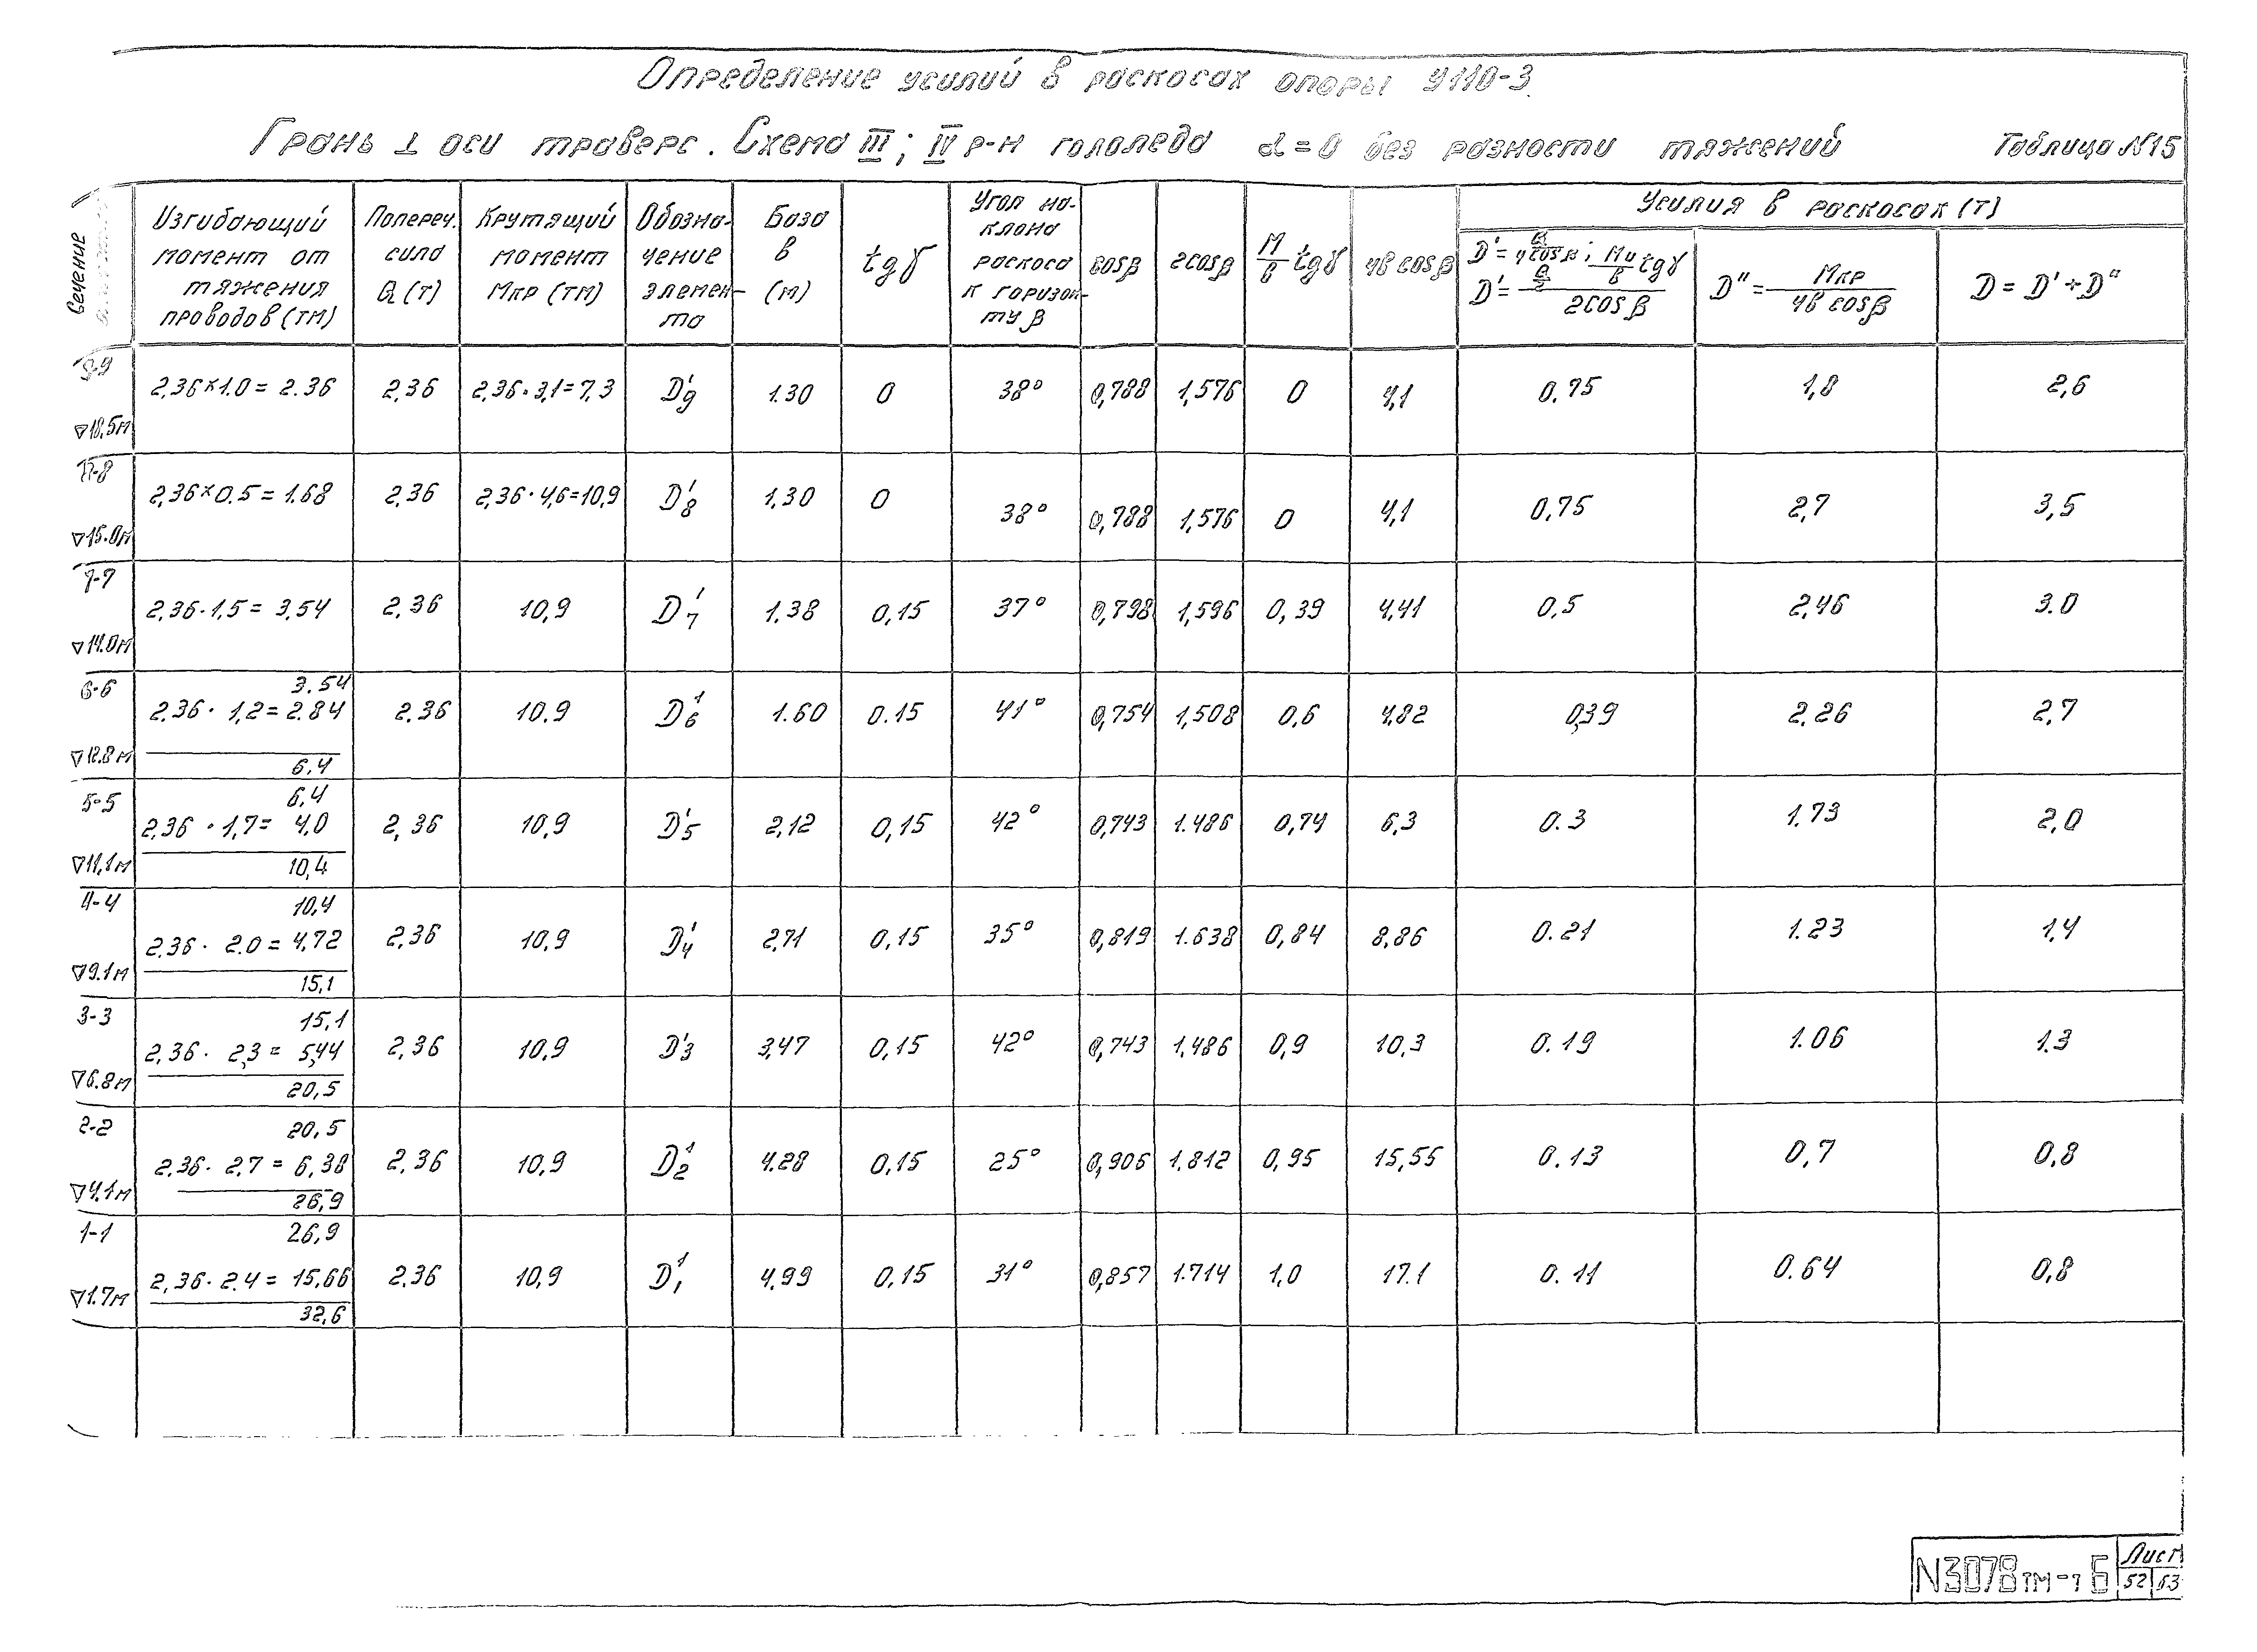 Определение усилий в раскосах опоры У110-3
Грань ⊥ оси траверс. Схема III; IV р-н гололеда α=0 без разности тяжений Таблица N15
Сечение
Изгибающий момент от тяжения проводов (ТМ)
Попереч. сила Q (Т)
Крутящий момент Мкр (ТМ)
Обозна-чение элемен-та
База в (м)
tgγ
Угол на-клона раскоса к горизон-ту β
cosβ
2cosβ
M/в tgγ
4в cosβ
Усилия в раскосах (Т)
D' = Q/4cosβ; D' = (Q/2 - Mи/в tgγ)/2cosβ
D" = Мкр/4в cosβ
D = D' + D"
9-9 ▽18,5м 2,36×1.0 = 2.36 2,36 2,36·3,1=7,3 D'9 1.30 0 38° 0,788 1,576 0 4,1 0.75 1,8 2,6
8-8 ▽15.0м 2,36×0.5 = 1.68 2,36 2,36·4,6=10,9 D'8 1,30 0 38° 0,788 1,576 0 4,1 0,75 2,7 3,5
7-7 ▽14.0м 2,36·1,5 = 3,54 2,36 10,9 D'7 1.38 0,15 37° 0,798 1,596 0,39 4,41 0,5 2,46 3.0
6-6 ▽12.8м 3.54
2.36· 1,2 = 2.84 2.36 10.9 D'6 1.60 0.15 41° 0,754 1,508 0,6 4,82 0,39 2,26 2,7
6,4
5-5 ▽11,1м 6,4
2,36 · 1,7 = 4,0 2,36 10,9 D'5 2,12 0,15 42° 0,743 1.486 0,74 6,3 0.3 1.73 2,0
10,4
4-4 ▽9.1м 10,4
2.36· 2.0 = 4,72 2,36 10,9 D'4 2,71 0,15 35° 0,819 1.638 0,84 8,86 0.21 1.23 1,4
15,1
3-3 ▽6.8м 15,1
2,36· 2,3 = 5,44 2,36 10,9 D'3 3,47 0,15 42° 0,743 1,486 0,9 10,3 0.19 1.06 1.3
20,5
2-2 ▽4.1м 20,5
2,36· 2,7 = 6,38 2,36 10,9 D'2 4.28 0,15 25° 0,906 1.812 0,95 15,55 0.13 0,7 0,8
26,9
1-1 ▽1.7м 26,9
2,36· 2.4 = 15.66 2.36 10,9 D'1 4,99 0,15 31° 0,857 1.714 1,0 17.1 0.11 0.64 0,8
32,6
N3078тм-т6 Лист
52 63